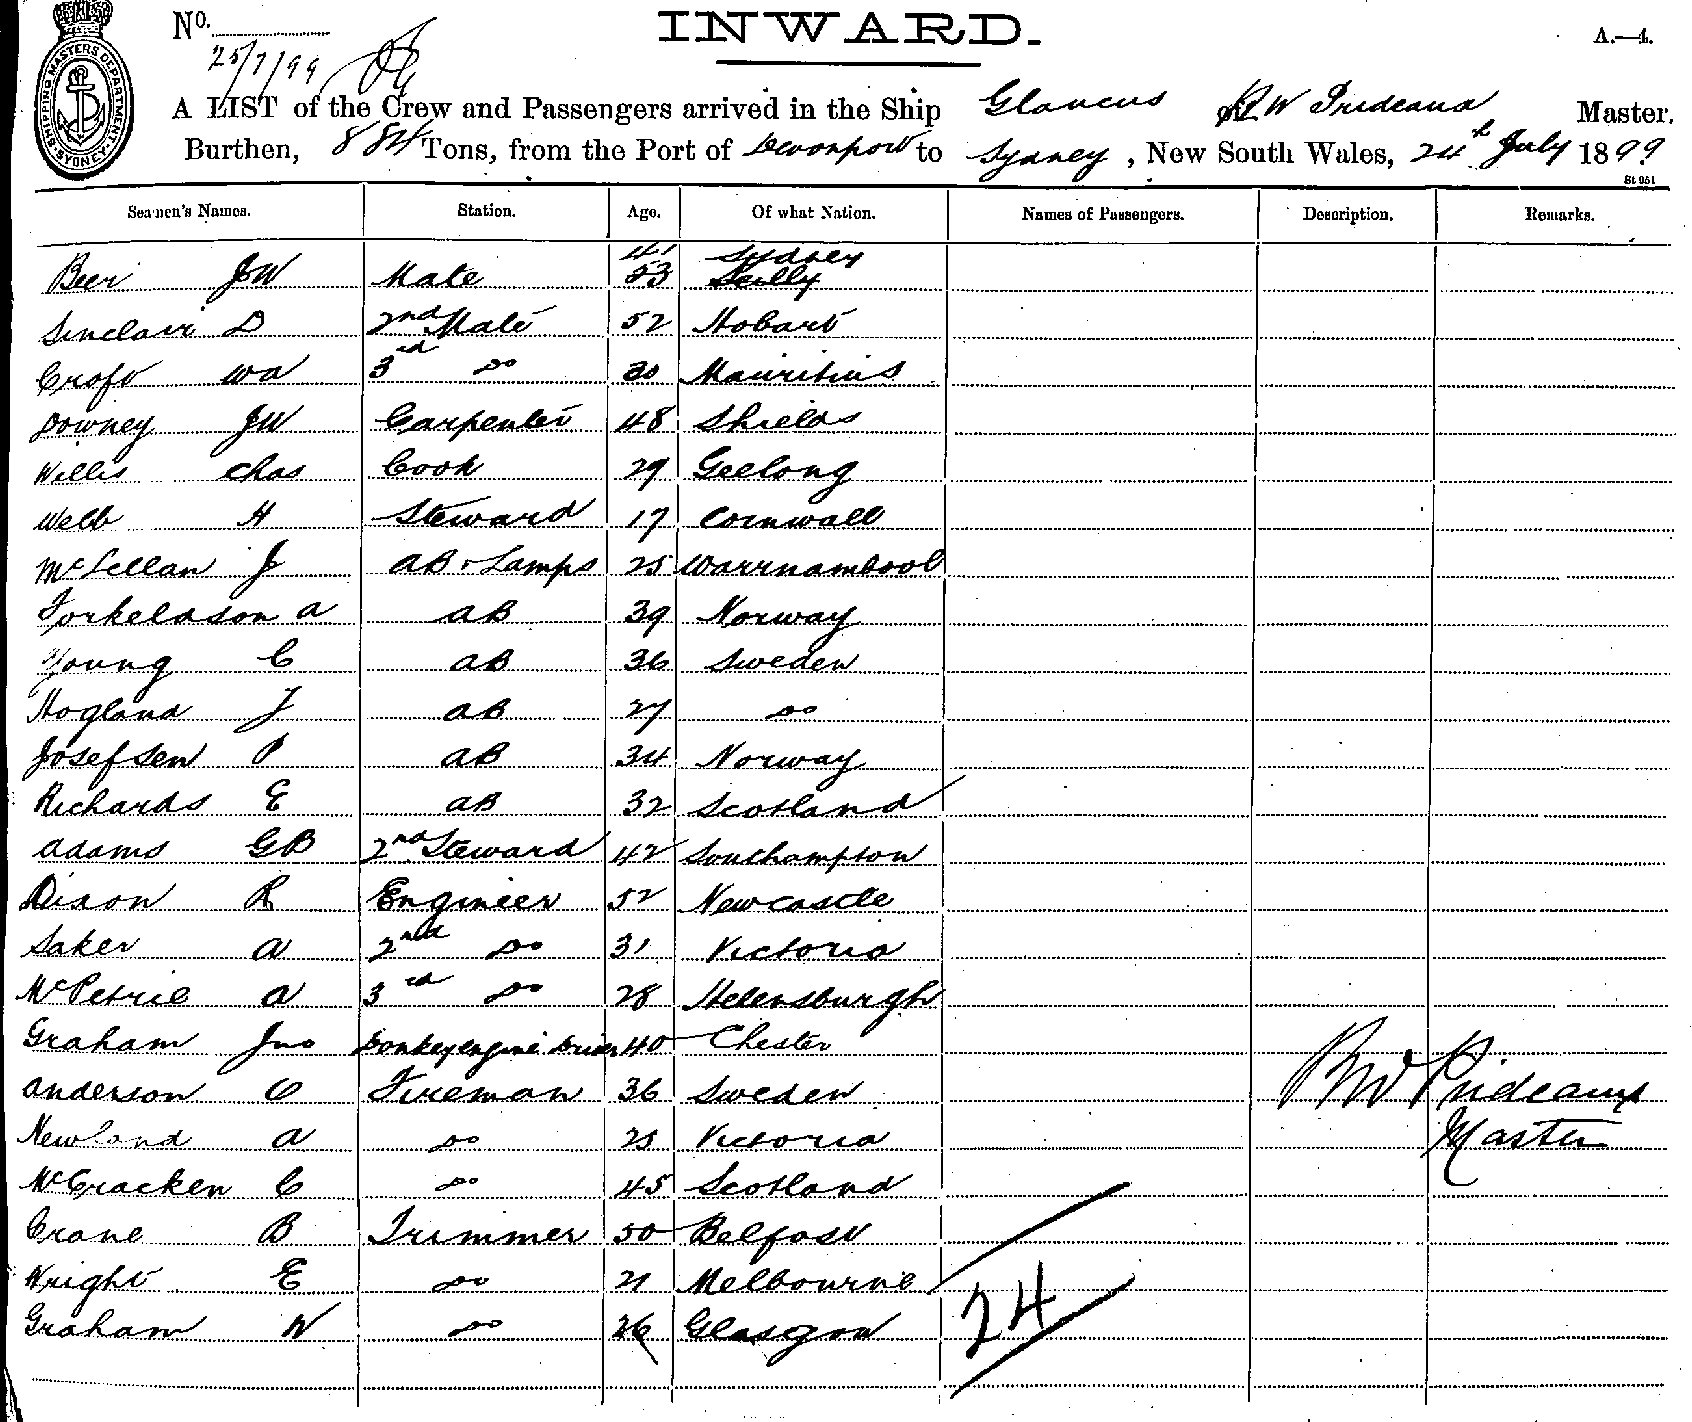 No.
INWARD.
A.—4.
25/7/99
SHIPPING MASTERS DEPARTMENT SYDNEY
A LIST of the Crew and Passengers arrived in the Ship Glaucus R W Prideaux Master.
Burthen, Tons, from the Port of Devonport to Sydney, New South Wales, 24th July 1899
St 951
Seamen's Names. Station. Age. Of what Nation. Names of Passengers. Description. Remarks.
41 Sydney
Beer JW Mate 53 Scilly
Sinclair D 2nd Mate 52 Hobart
Croft WA 3rd do 30 Mauritius
Downey JW Carpenter 48 Shields
Willis Chas Cook 29 Geelong
Webb H Steward 17 Cornwall
McLellan J AB & Lamps 25 Warrnambool
Torkeldson A AB 39 Norway
Young C AB 36 Sweden
Hogland J AB 27 do
Josefsen P AB 34 Norway
Richards E AB 32 Scotland
Adams GB 2nd Steward 42 Southampton
Dixon R Engineer 52 Newcastle
Saker A 2nd do 31 Victoria
McPetrie A 3rd do 28 Helensburgh
Graham Jno Donkey engine Driver 40 Chester
Anderson O Fireman 36 Sweden
Newland A do 25 Victoria
McCracken C do 45 Scotland
Crane B Trimmer 50 Belfast
Wright E do 21 Melbourne
Graham W do 26 Glasgow
RW Prideaux
Master
24